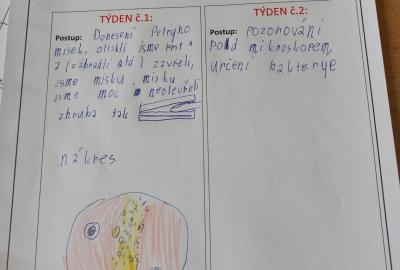 TÝDEN č.1:
Postup: Donesení Petryho
misek, otiskli jsme
a (zábradlí atd.) zavřeli,
jsme misku. misku
jsme moc neotevřeli
zhruba tak
nákres
TÝDEN č.2:
Postup: pozorování
pod mikroskopem,
určení bakterye